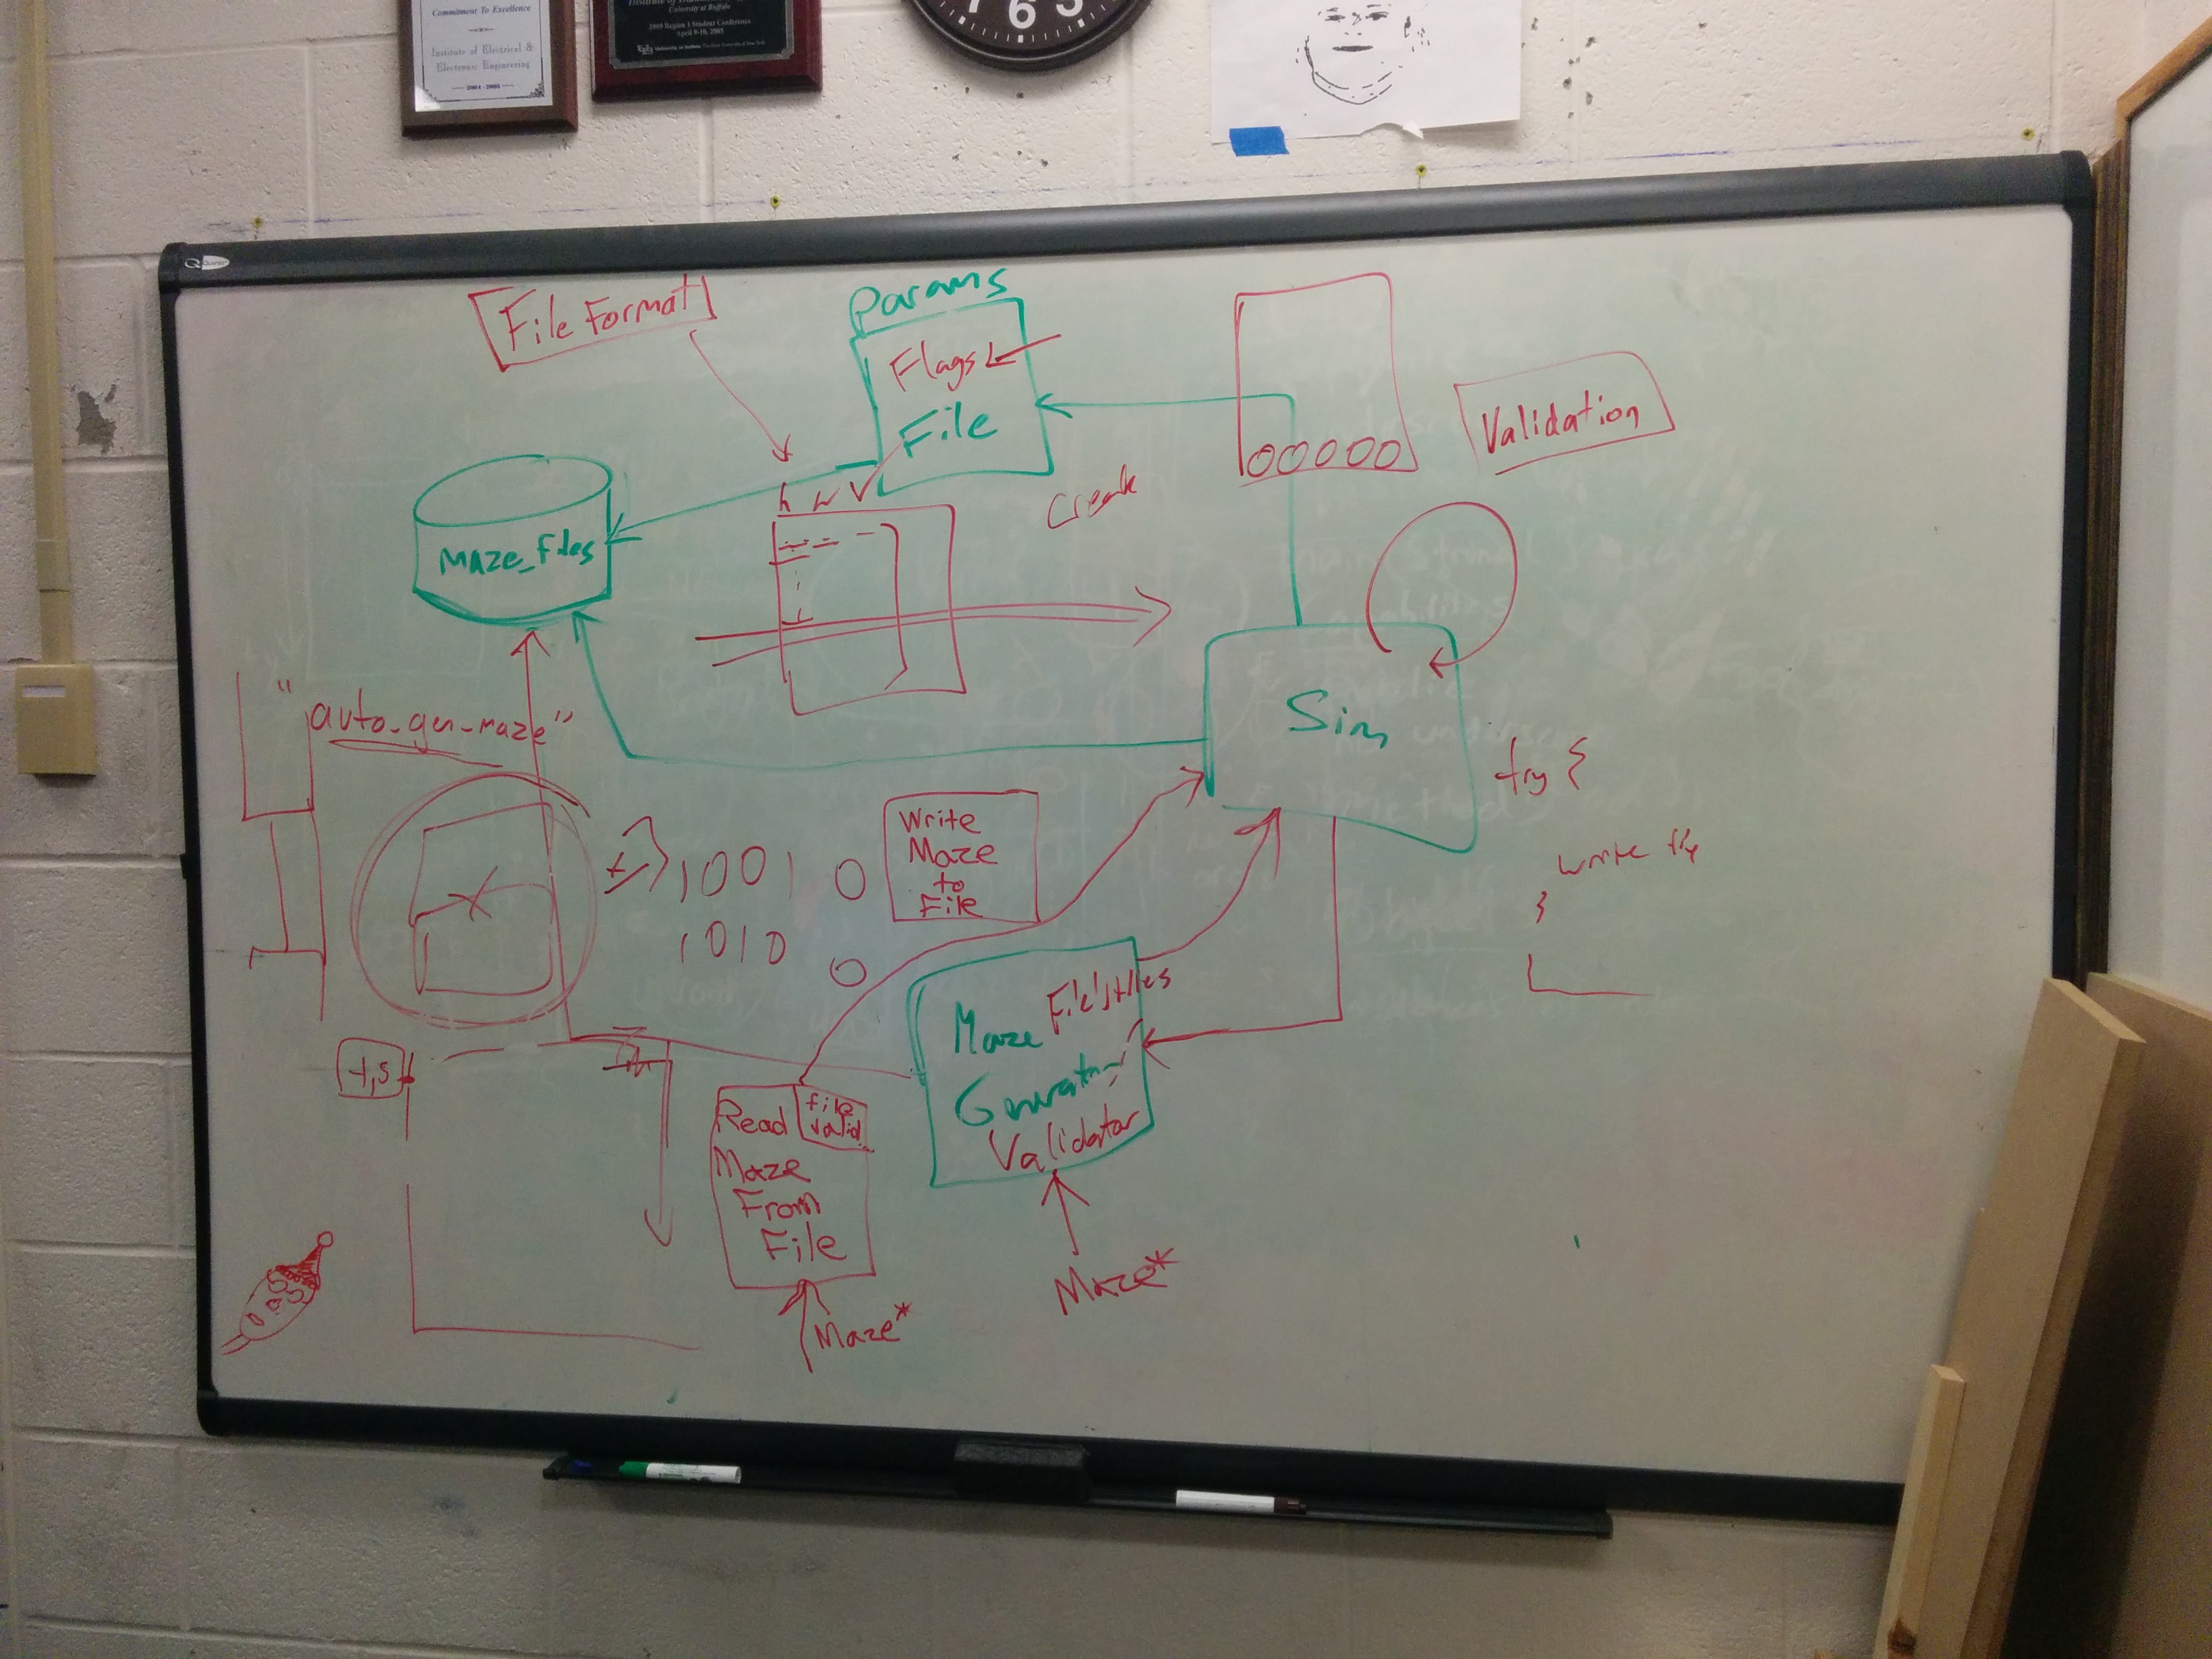 Commitment To Excellence
Institute of Electrical &
Electronic Engineering
2004 - 2005
University at Buffalo
2005 Region 1 Student Conference
April 9-10, 2005
7 6 5
Quartet
File Format
Params
Flags
File
Validation
00000
h w v
Create
Maze_Files
"auto_gen_maze"
Sim
try {
write
}
Write
Maze
to
File
1001 0
1010 0
Maze
Generator
Validator
Read
file
valid
Maze
From
File
Maze*
Maze*